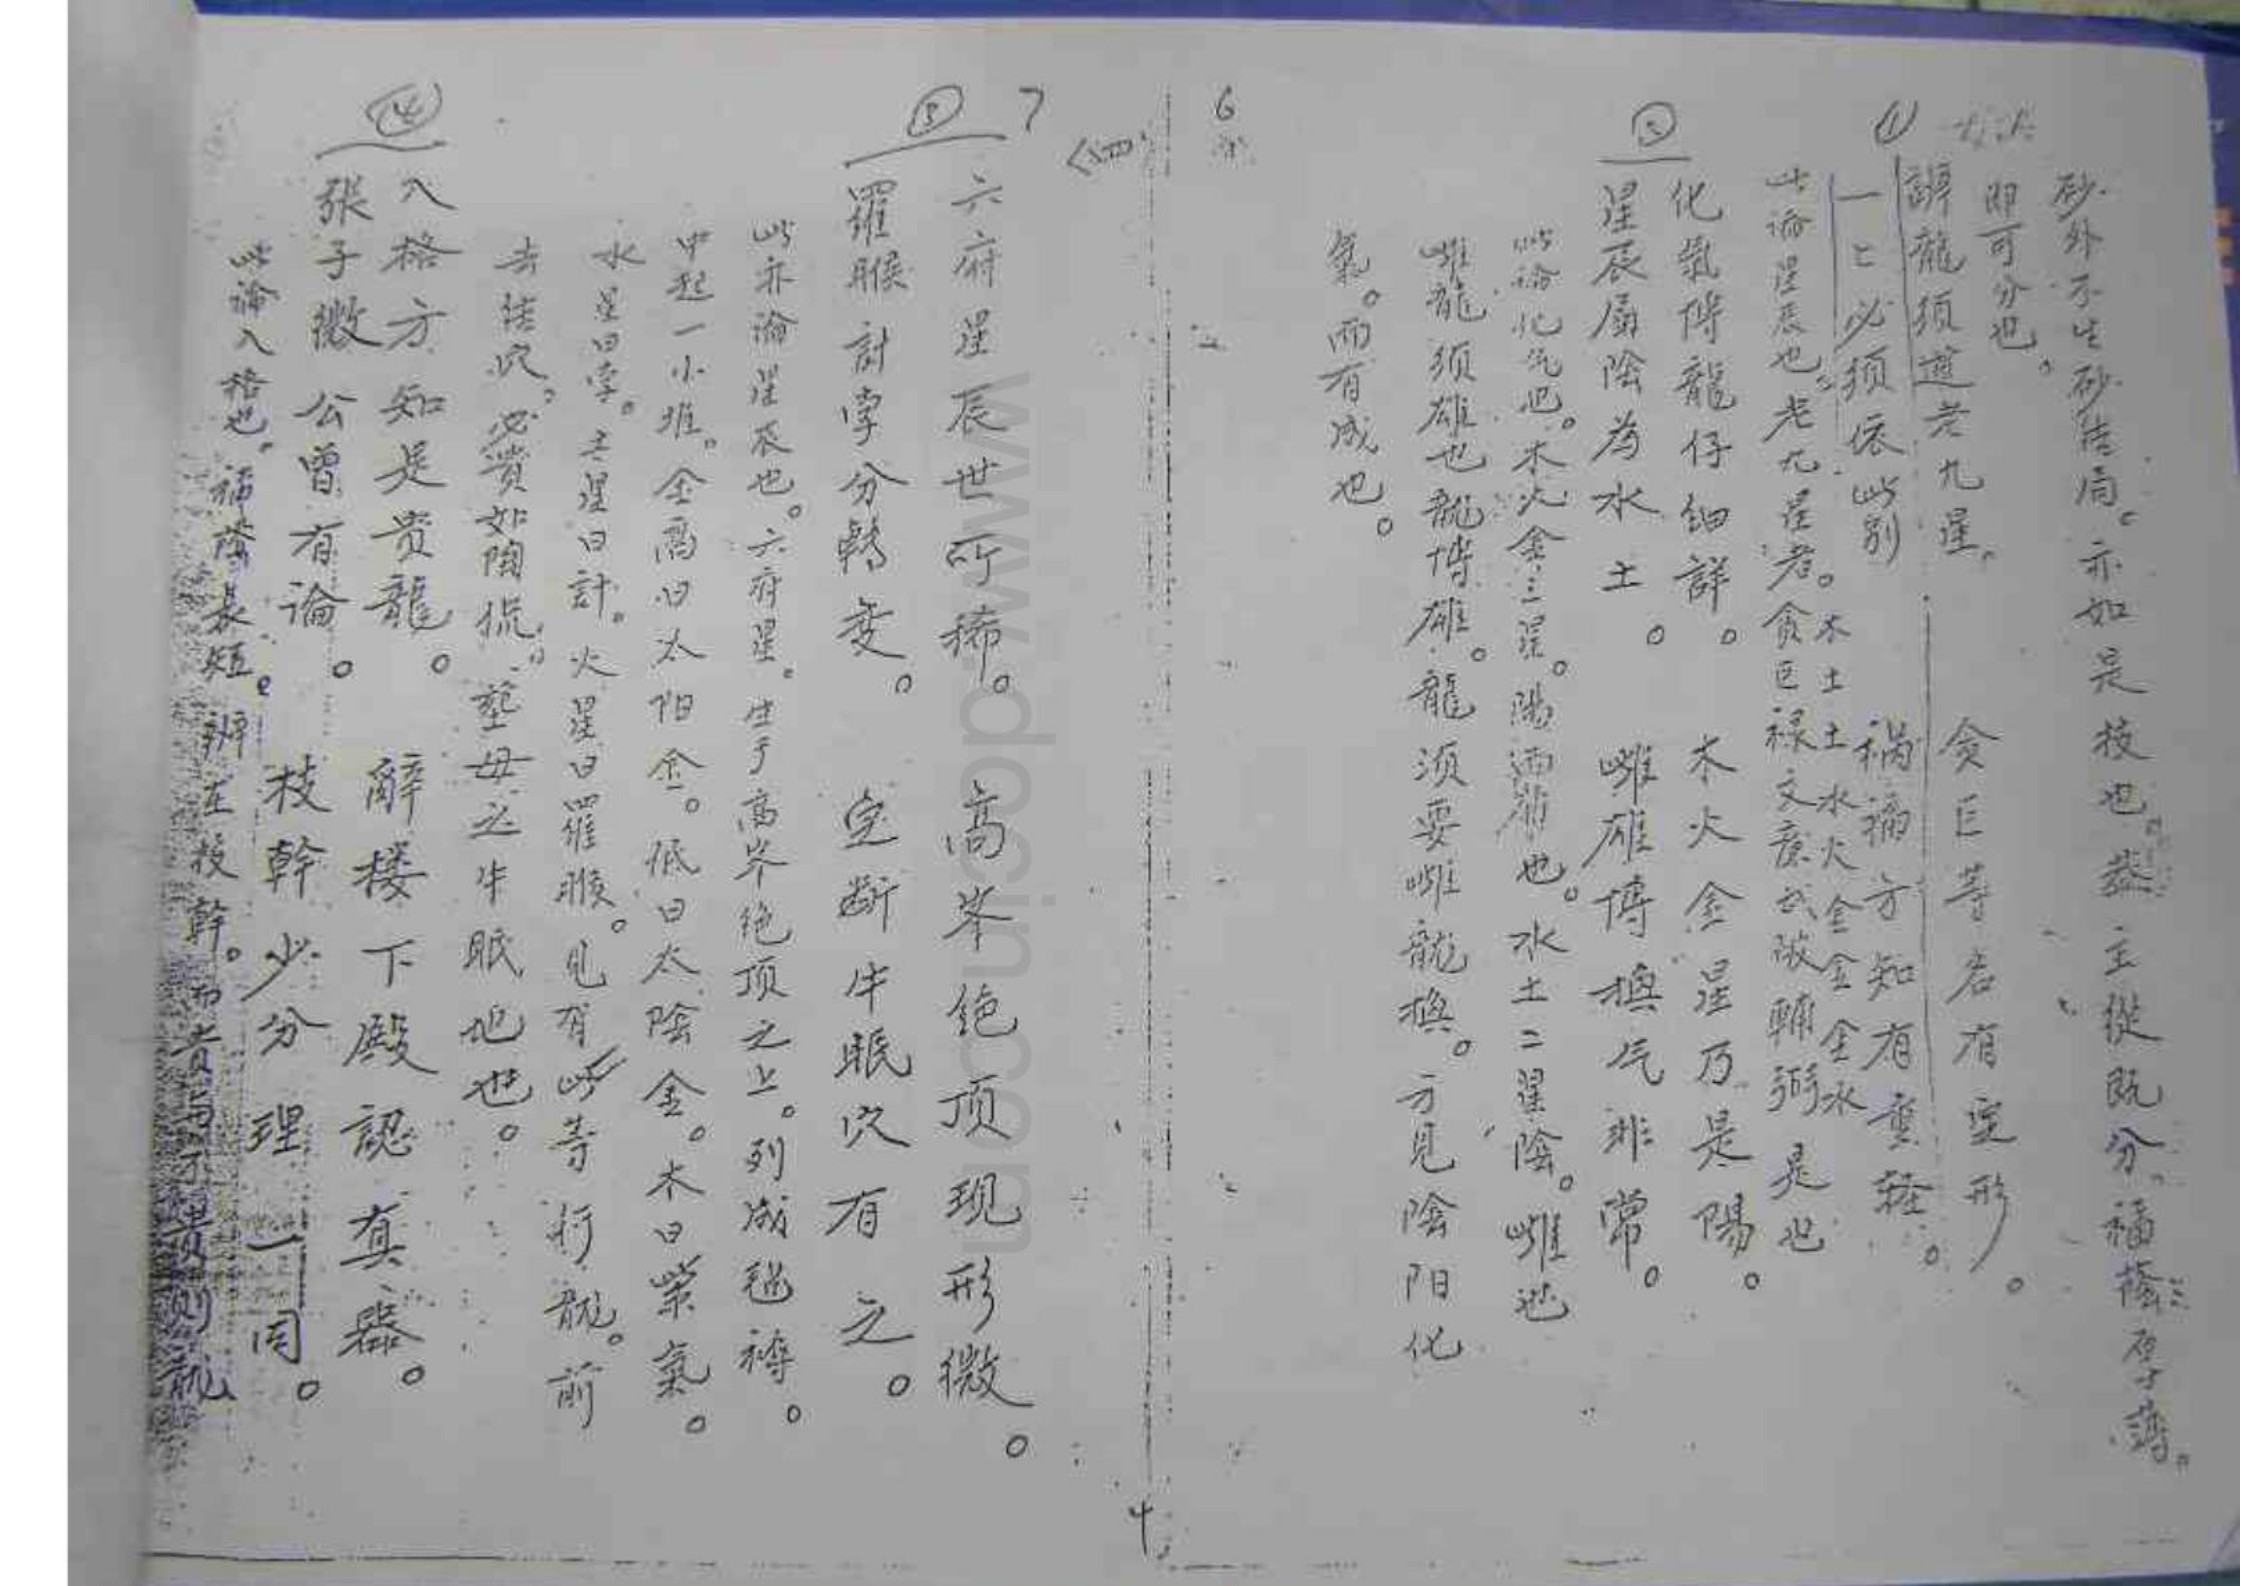 砂外不生砂结局。亦如是枝也。主從既分。福蔭厚薄。
即可分也。
①
辭龍須逆老九星。貪巨等名有定形。
一一必須依此别 祸福方知有重軽。
此論星辰也。老九星者。貪巨禄文廉武破輔弼是也
木土土水火金金金水
②
化氣博龍仔细詳。木火金星乃是陽。
星辰屬陰為水土。雌雄博換气非常。
此論化气也。木火金三星。陽也。水土二星陰。雌
雌龍须雄也龍博雄。龍须要雌龍換。方見陰阳化
氣。而有成也。
6
7
〈四〉
③
六府星辰世所稀。高峯绝顶現形微。
羅睺計孛分轉变。定断牛眠穴有之。
此亦論星辰也。六府星。生于高峯绝顶之上。列成毬褥。
中起一小堆。金高曰太阳金。低曰太陰金。木曰紫氣。
水星曰孛。土星曰計。火星曰羅睺。見有此等行龍。前
去结穴。必贵如陶侃。塟母之牛眠地也。
④
入格方知是贵龍。辭楼下殿認真踪。
張子微公曾有論。枝幹少分理一同。
此論入格也。福蔭長短。辨在枝幹。而贵与不贵則龍
4
www.docin.com